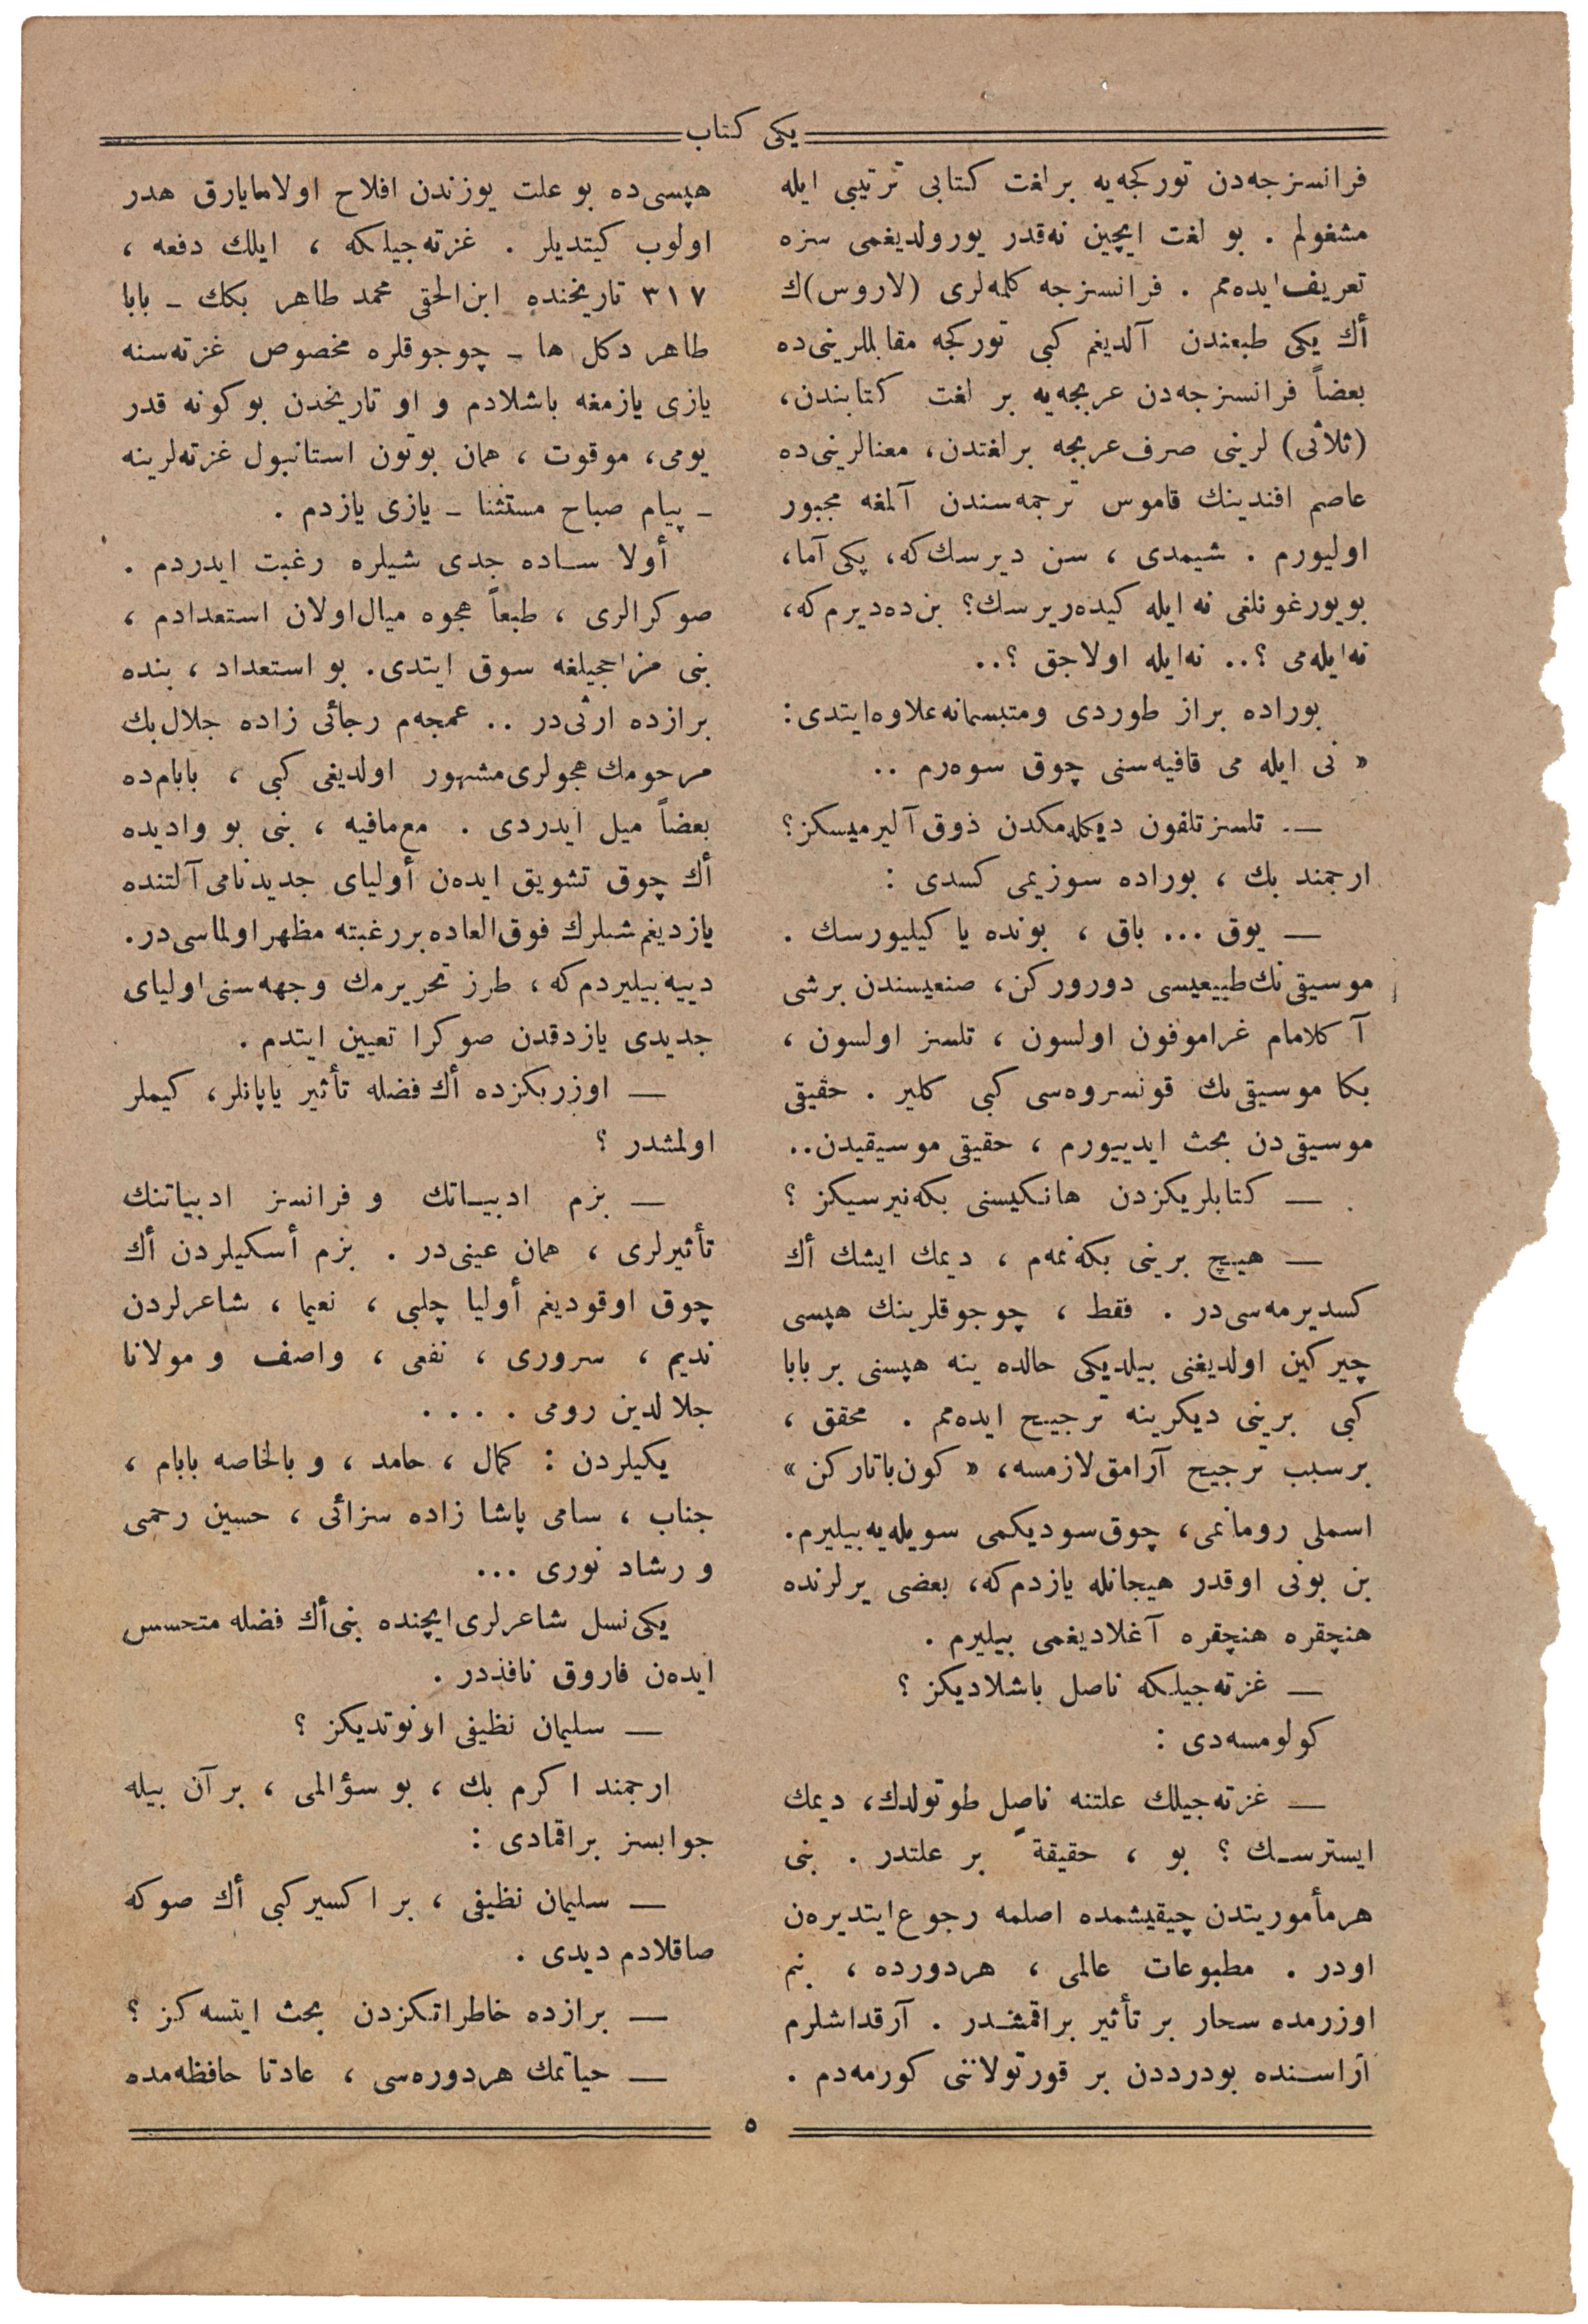 یکی کتاب
فرانسزجه‌دن تورکجه‌یه بر لغت کتابی ترتیبی ایله
مشغولم . بو لغت ایچین نه‌قدر یورولدیغمی سزه
تعریف ایده‌مم . فرانسزجه کلمه‌لری (لاروس)ك
أك یکی طبعندن آلدیغم کبی تورکجه مقابللرینی‌ده
بعضاً فرانسزجه‌دن عربجه‌یه بر لغت کتابندن،
(ثلاثی) لرینی صرف عربجه بر لغتدن، معنالرینی‌ده
عاصم افندینك قاموس ترجمه‌سندن آلمغه مجبور
اولیورم . شیمدی ، سن دیرسك‌که، پکی آما،
بو یورغونلغی نه ایله کیده‌ریرسك؟ بن ده‌دیرم‌که،
نه‌ایله‌می ؟.. نه‌ایله اولاجق ؟..
بوراده براز طوردی ومتبسمانه علاوه ایتدی:
« نی ایله می قافیه‌سنی چوق سوه‌رم ..
— تلسز تلفون دیکله‌مکدن ذوق آلیرمیسکز؟
ارجمند بك ، بوراده سوزیمی کسدی :
— یوق ... باق ، بونده یا کیلیورسك .
موسیقی‌نك طبیعیسی دورورکن، صنعیسندن برشی
آ کلامام غراموفون اولسون ، تلسز اولسون ،
بکا موسیقی‌نك قونسروه‌سی کبی کلیر . حقیقی
موسیقی‌دن بحث ایدییورم ، حقیقی موسیقیدن..
— کتابلریکزدن هانکیسنی بکه‌نیرسیکز ؟
— هیچ برینی بکه‌نمه‌م ، دیمك ایشك أك
کسدیرمه‌سی‌در . فقط ، چوجوقلرینك هپسی
چیرکین اولدیغنی بیلدیکی حالده ینه هپسنی بر بابا
کبی برینی دیکرینه ترجیح ایده‌مم . محقق ،
برسبب ترجیح آرامق لازمسه، « کون باتارکن »
اسملی رومانمی، چوق سودیکمی سویله‌یه بیلیرم.
بن بونی اوقدر هیجانله یازدم‌که، بعضی یرلرنده
هنچقره هنچقره آغلادیغمی بیلیرم .
— غزته‌جیلکه ناصل باشلادیکز ؟
کولومسه‌دی :
— غزته‌جیلك علتنه ناصل طوتولدك، دیمك
ایسترسـك ؟ بو ، حقیقةً بر علتدر . بنی
هرمأموریتدن چیقیشمده اصلمه رجوع ایتدیره‌ن
اودر . مطبوعات عالمی ، هردورده ، بنم
اوزرمده سحار بر تأثیر براقمشـدر . آرقداشلرم
آراسـنده بودرددن بر قورتولاننی کورمه‌دم .
هپسی‌ده بو علت یوزندن افلاح اولامایارق هدر
اولوب کیتدیلر . غزته‌جیلکه ، ایلك دفعه ،
٣١٧ تاریخنده ابن‌الحقی محمد طاهر بكك ـ بابا
طاهر دکل ها ـ چوجوقلره مخصوص غزته‌سنه
یازی یازمغه باشلادم و او تاریخدن بو کونه قدر
یومی، موقوت ، همان بوتون استانبول غزته‌لرینه
ـ پیام صباح مستثنا ـ یازی یازدم .
أولا سـاده جدی شیلره رغبت ایدردم .
صوکرالری ، طبعاً هجوه میال اولان استعدادم ،
بنی مزاحجیلغه سوق ایتدی. بو استعداد ، بنده
برازده ارثی‌در .. عمجه‌م رجائی زاده جلال بك
مرحومك هجولری مشهور اولدیغی کبی ، بابام‌ده
بعضاً میل ایدردی . مع‌مافیه ، بنی بو وادیده
أك چوق تشویق ایده‌ن أولیای جدید نامی آلتنده
یازدیغم شیلرك فوق‌العاده بررغبته مظهر اولماسی‌در.
دییه بیلیردم‌که ، طرز تحریرمك وجهه‌سنی اولیای
جدیدی یازدقدن صوکرا تعیین ایتدم .
— اوزریکزده أك فضله تأثیر یاپانلر، کیملر
اولمشدر ؟
— بزم ادبیـاتك و فرانسز ادبیاتنك
تأثیرلری ، همان عینی‌در . بزم أسکیلردن أك
چوق اوقودیغم أولیا چلبی ، نعیما ، شاعرلردن
ندیم ، سروری ، نفعی ، واصف و مولانا
جلالدین رومی . . . .
یکیلردن : کمال ، حامد ، و بالخاصه بابام ،
جناب ، سامی پاشا زاده سزائی ، حسین رحمی
و رشاد نوری ...
یکی نسل شاعرلری ایچنده بنی أك فضله متحسس
ایده‌ن فاروق نافذدر .
— سلیمان نظیفی اونوتدیکز ؟
ارجمند اکرم بك ، بو سؤالمی ، بر آن بیله
جوابسز براقمادی :
— سلیمان نظیفی ، بر اکسیر کبی أك صوکه
صاقلادم دیدی .
— برازده خاطراتکزدن بحث ایتسه‌کز ؟
— حیاتمك هردوره‌سی ، عادتا حافظه‌مده
٥